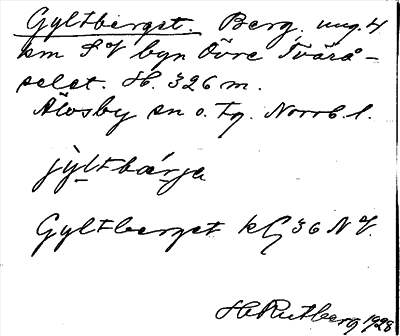 Gyltberget. Berg, ung. 4
km S V byn Övre Tvärå-
selet. H. 326 m.
Älvsby sn o. tg. Norrb. l.
jyltbárja
Gyltberget kG 36 N V.
H Rutberg 1928